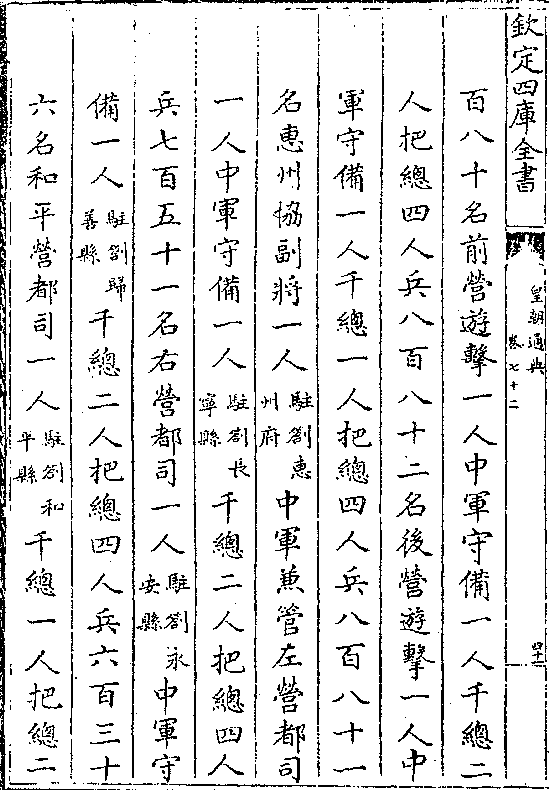 欽定四庫全書
皇朝通典
卷七十二
四十一
百八十名前營遊擊一人中軍守備一人千總二
人把總四人兵八百八十二名後營遊擊一人中
軍守備一人千總一人把總四人兵八百八十一
名惠州協副將一人駐劄惠州府中軍兼管左營都司
一人中軍守備一人駐劄長寧縣千總二人把總四人
兵七百五十一名右營都司一人駐劄永安縣中軍守
備一人駐劄歸善縣千總二人把總四人兵六百三十
六名和平營都司一人駐劄和平縣千總一人把總二